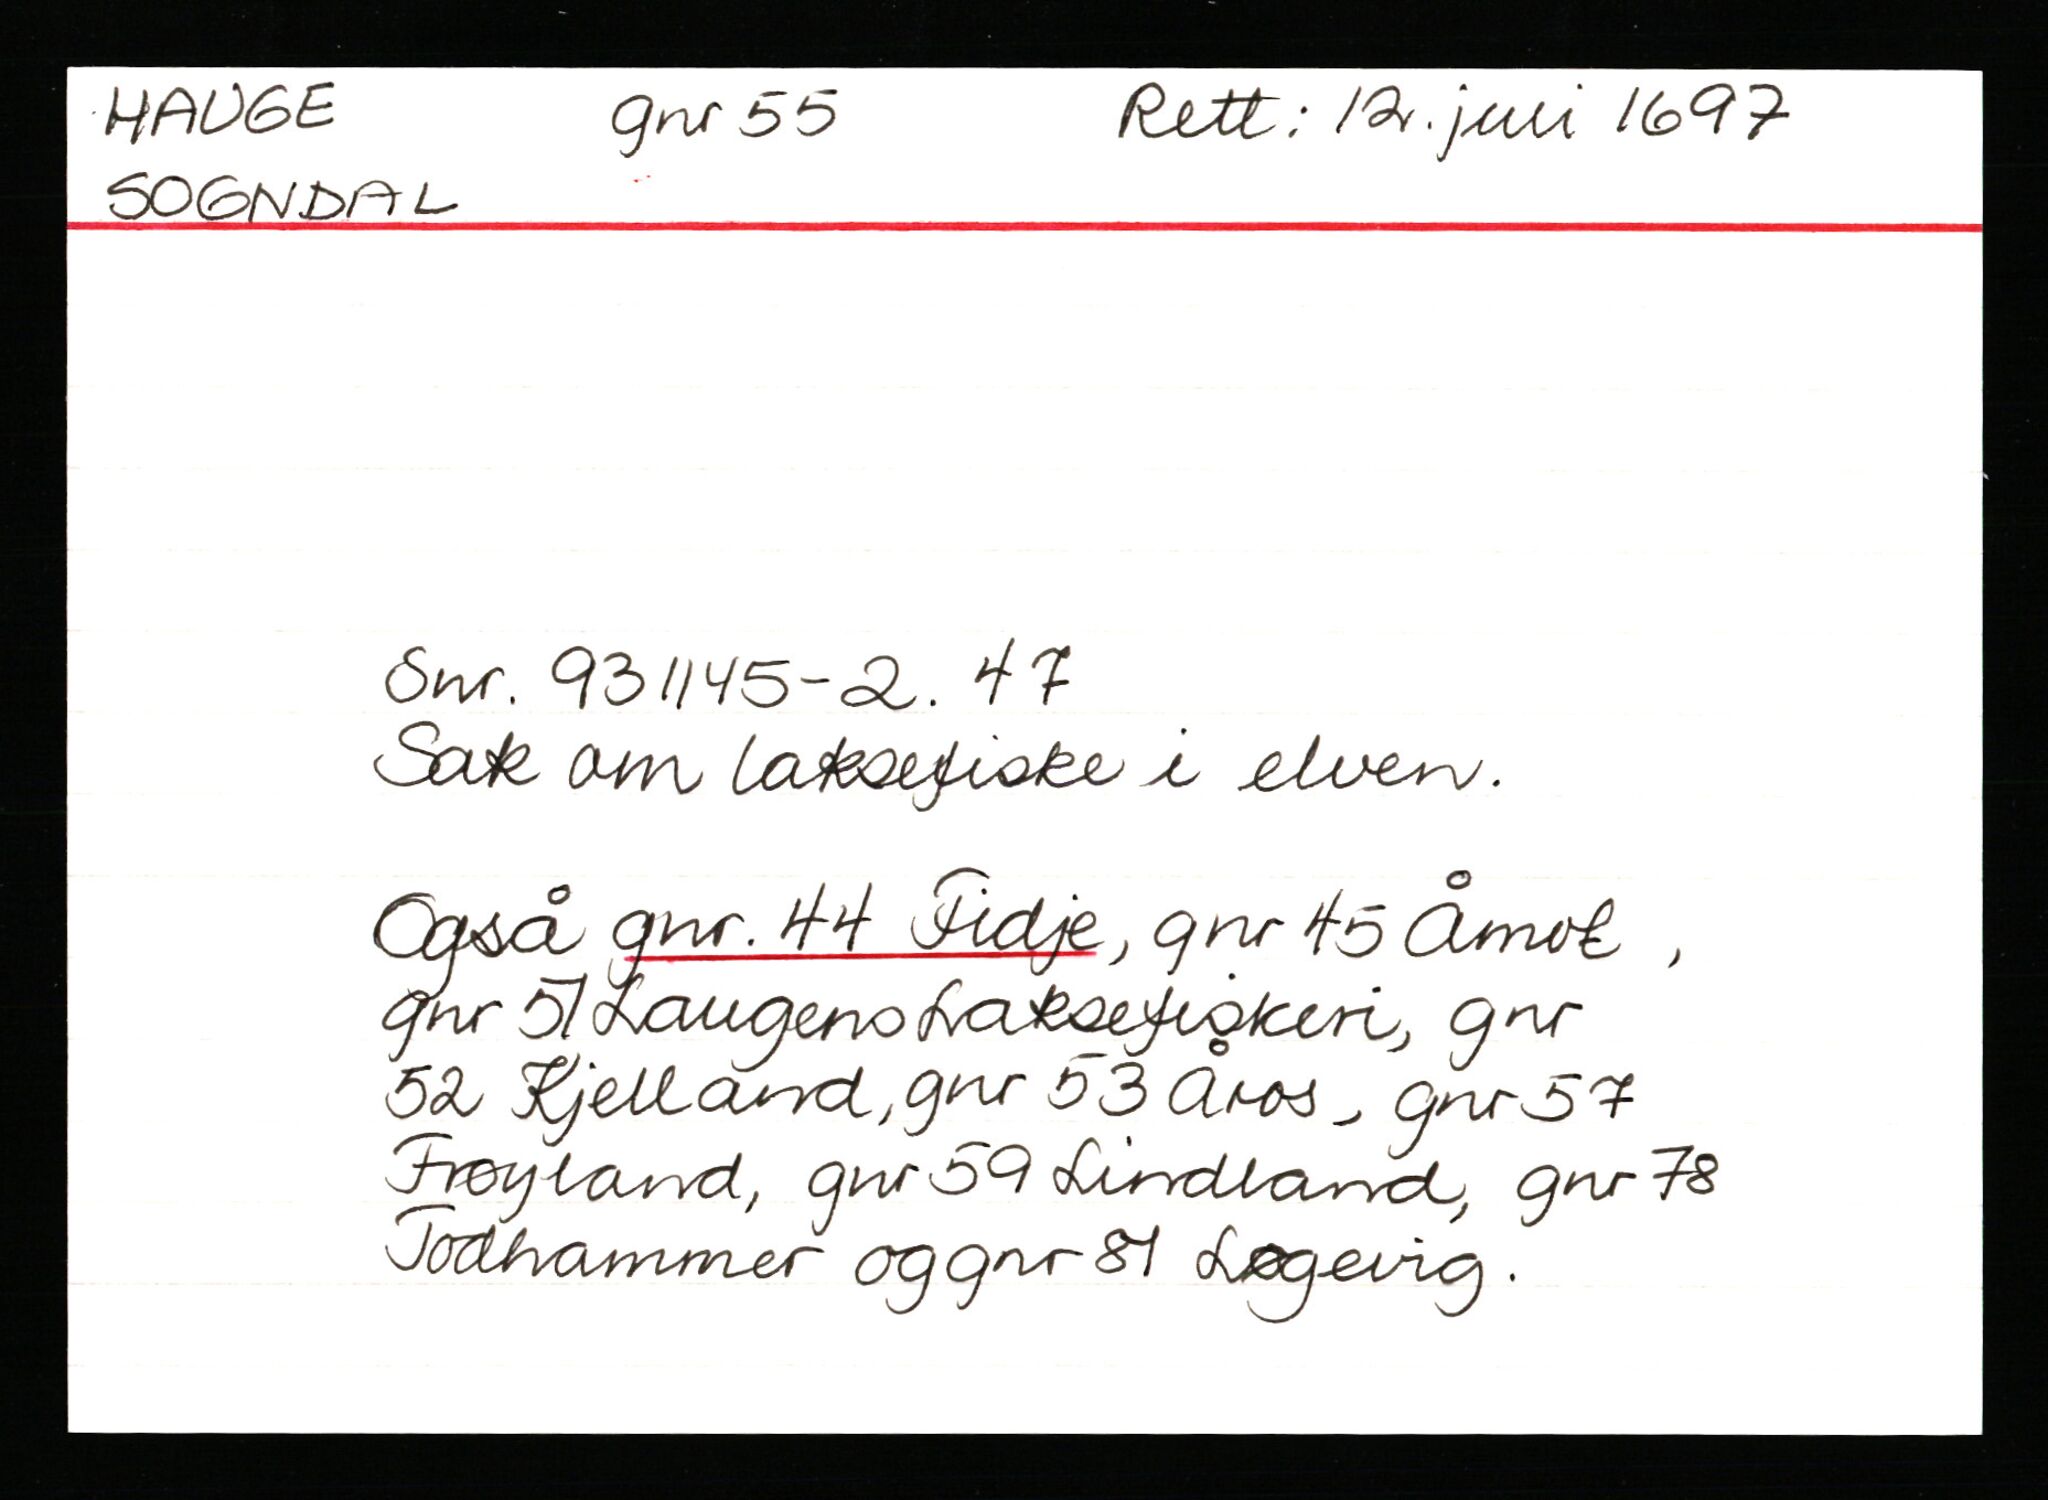 HAUGE gnr 55 Rett: 12. juli 1697
SOGNDAL
Snr. 931145-2. 47
Sak om laksefiske i elven.
Også gnr. 44 Fidje, gnr 45 Åmot,
gnr 51 Laugens Laksefiskeri, gnr
52 Kjelland, gnr 53 Åros, gnr 57
Frøyland, gnr 59 Lindland, gnr 78
Todhammer og gnr 81 Løgevig.